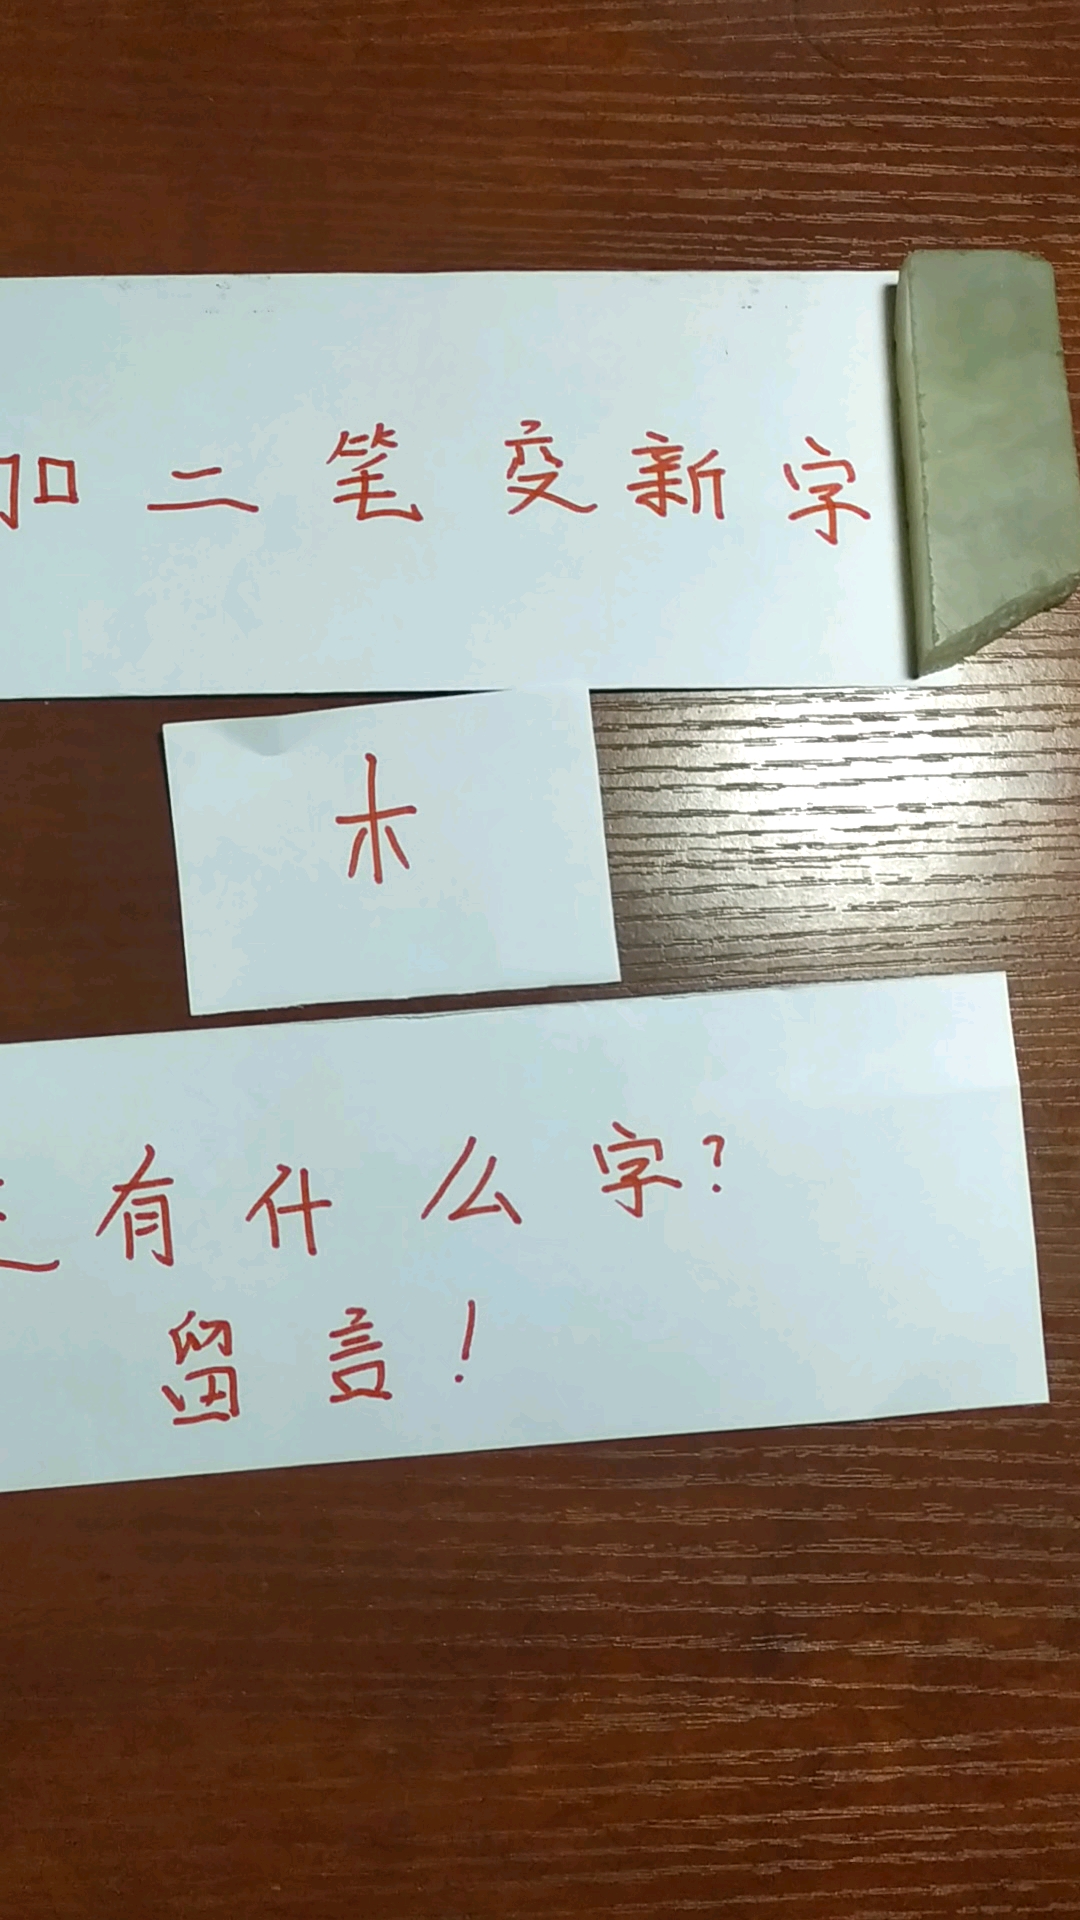 加二笔变新字
木
还有什么字?
留言!